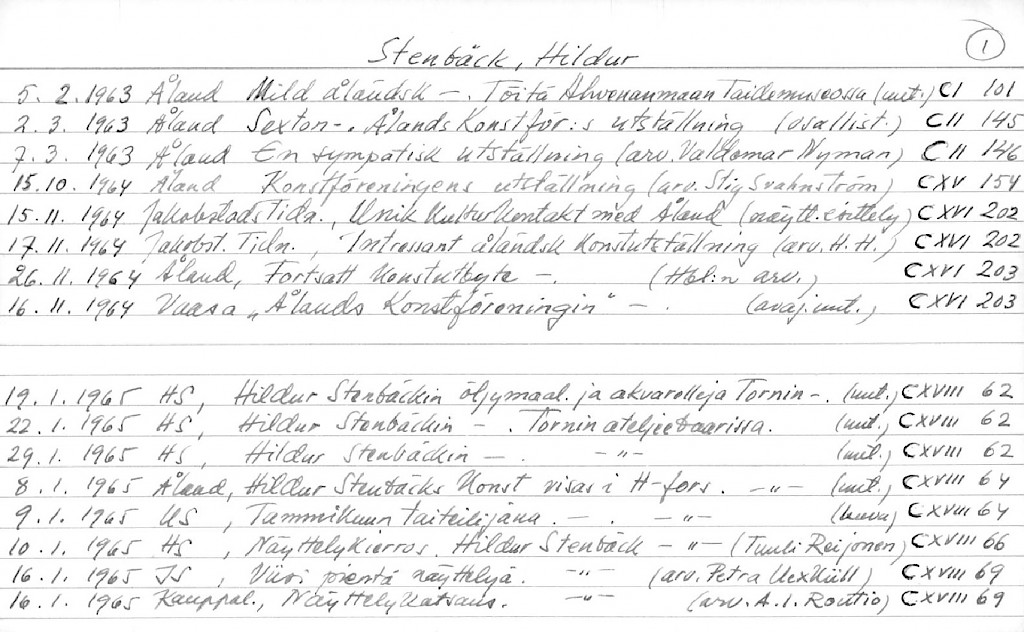 1
Stenbäck, Hildur
5. 2. 1963 Åland Mild åländsk – . Töitä Ahvenanmaan Taidemuseossa (uut.) CI 101
2. 3. 1963 Åland Sexton-. Ålands Konstför:s utställning (osallist.) CII 145
7. 3. 1963 Åland En sympatisk utställning (arv. Valdemar Nyman) CII 146
15.10. 1964 Åland Konstföreningens utställning (arv. Stig Svahnström) CXV 154
15. 11. 1964 Jakobstads Tidn., Unik Kulturkontakt med Åland (näytt. esittely) CXVI 202
17. 11. 1964 Jakobst. Tidn., Intressant åländsk konstutställning (arv. H. H.) CXVI 202
26. 11. 1964 Åland, Fortsatt konstutbyte – . (Hbl:n arv.) CXVI 203
16. 11. 1964 Vaasa „Ålands Konstföreningin" – . (avaj. uut.) CXVI 203
19. 1. 1965 HS, Hildur Stenbäckin öljymaal. ja akvarelleja Tornin –. (uut.) CXVIII 62
22. 1. 1965 HS, Hildur Stenbäckin – . Tornin ateljeebaarissa. (uut.) CXVIII 62
29. 1. 1965 HS, Hildur Stenbäckin – . –"– (uut.) CXVIII 62
8. 1. 1965 Åland, Hildur Stenbäcks konst visas i H-fors. –"– (uut.) CXVIII 64
9. 1. 1965 US, Tammikuun taiteilijana. – . –"– (kuva) CXVIII 64
10. 1. 1965 HS, Näyttelykierros. Hildur Stenbäck –"– (Tuuli Reijonen) CXVIII 66
16. 1. 1965 IS, Viisi pientä näyttelyä. –"– (arv. Petra Uexküll) CXVIII 69
16. 1. 1965 Kauppal., Näyttelykatsaus. –"– (arv. A. I. Routio) CXVIII 69